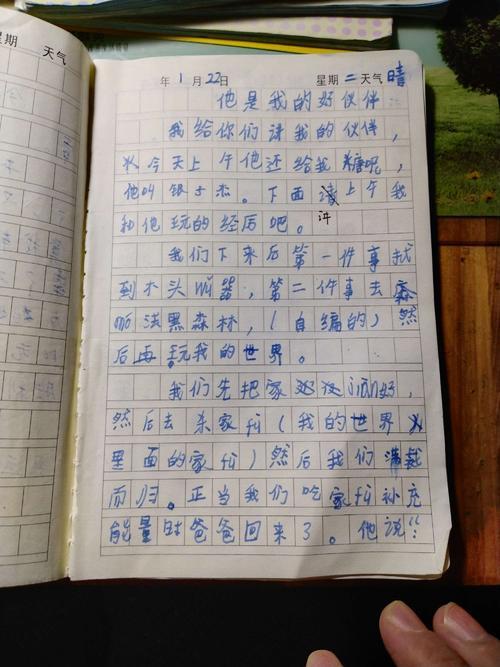 星期 天气
年 1 月 22 日 星期 二 天气 晴
他是我的好伙伴
我给你们讲我的伙伴，
今天上午他还给我糖呢，
他叫银子杰。下面讲上午我
和他玩的经历吧。
我们下来后第一件事找
到木头武器，第二件事去
黑森林，（自编的）然
后再玩我的世界。
我们先把家
然后去杀家（我的世界
里面的家）然后我们满载
而归。正当我们吃家补充
能量时爸爸回来了。他说：“